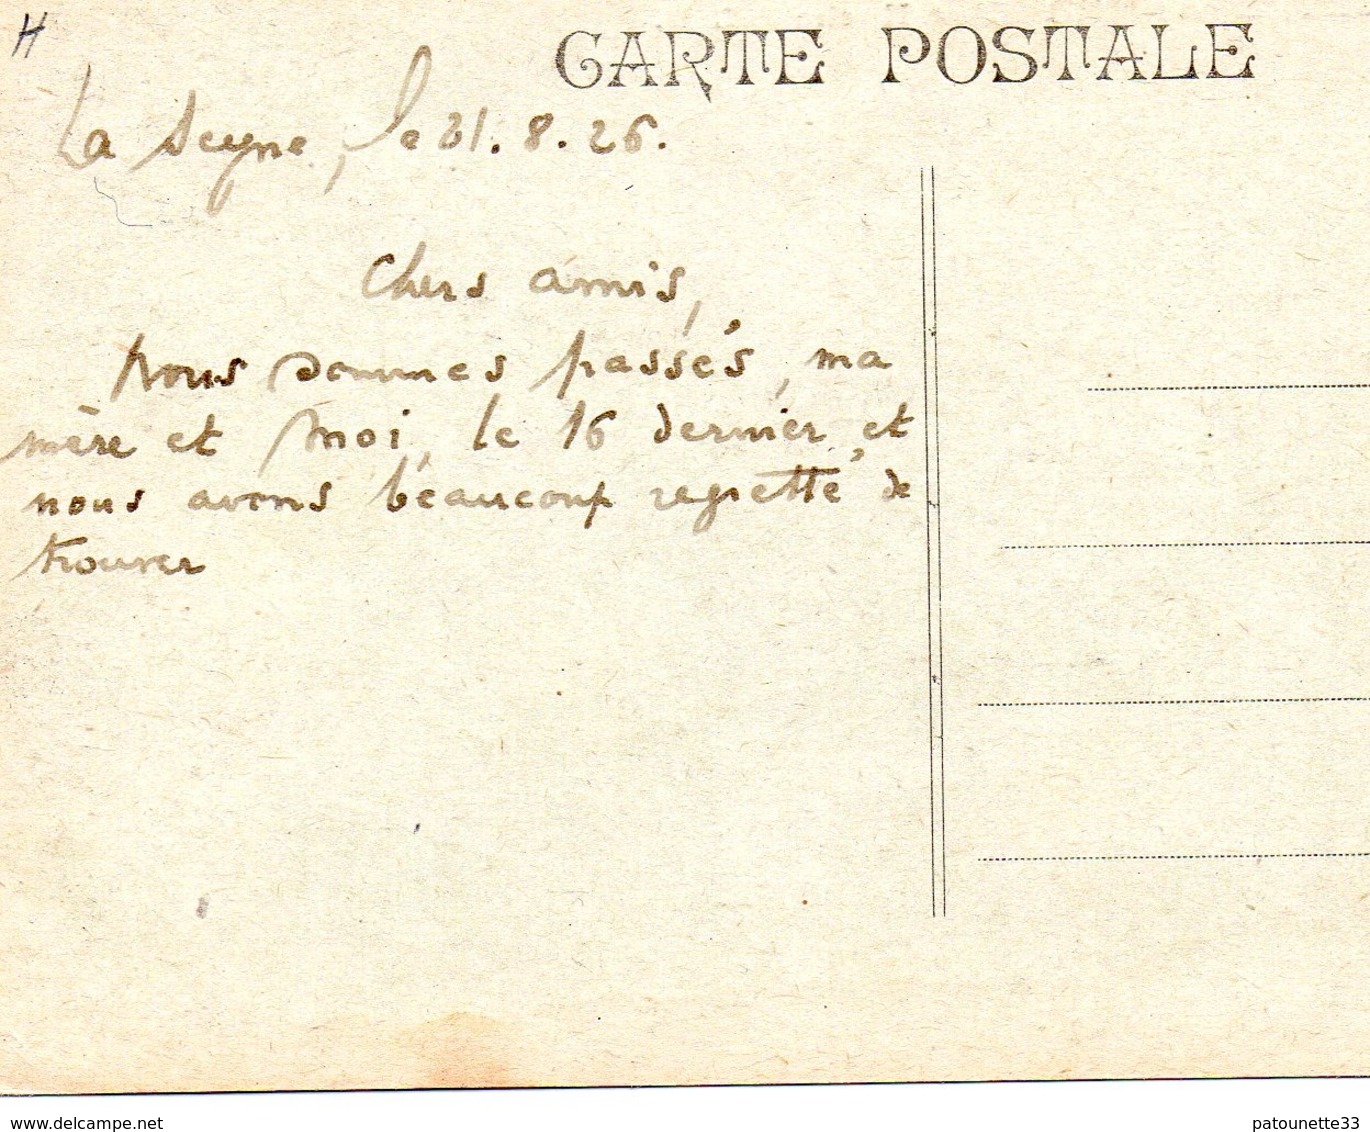 H
CARTE POSTALE
La Seyne, le 21.8.26.
Chers amis,
Nous sommes passés, ma
mère et moi, le 16 dernier, et
nous avons beaucoup regretté de
trouver
www.delcampe.net
patounette33